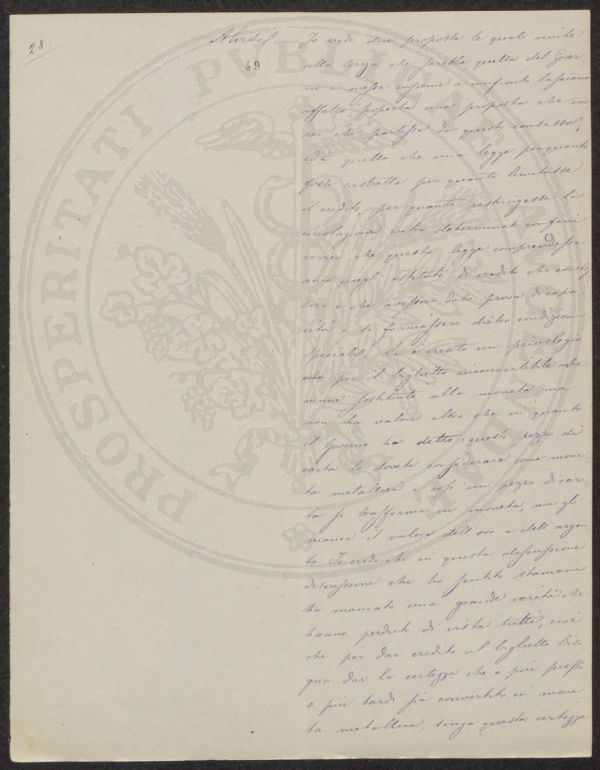 28
49
Io vedo due proposte le quali unite
alla terza che sarebbe quella del Gover
no e messe insieme a confronto lasciano
affatto scoperta una proposta che
rei che partisse da questo consesso,
ed è quella che una legge per quanto
fosse ristretta per quanto limitasse
il credito, per quanto restringesse la
circolazione entro determinati confini
vorrei che questa legge comprendesse
quegli istituti di credito che
e che avessero dato prova di capa
cità e si formassero dietro condizioni
speciali. Si è creato un privilegio
per il biglietto inconvertibile che
venne sostituito alla moneta ma
non ha valore altro che in quanto
il Governo ha detto: questo pezzo di
carta lo dovete considerare come mone
ta metallica, così un pezzo di car
ta si trasforma in moneta, ma gli
manca il valore dell'oro e dell'argen
to. Io credo che in questa
discussione che ho sentito stamani
ha mancato una grande verità che
hanno perduto di vista tutti, cioè
che per dar credito al biglietto bi
gna dar la certezza che o più presto
o più tardi sia convertito in mone
ta metallica, senza questa certezza
PROSPERITATI PVBLICAE